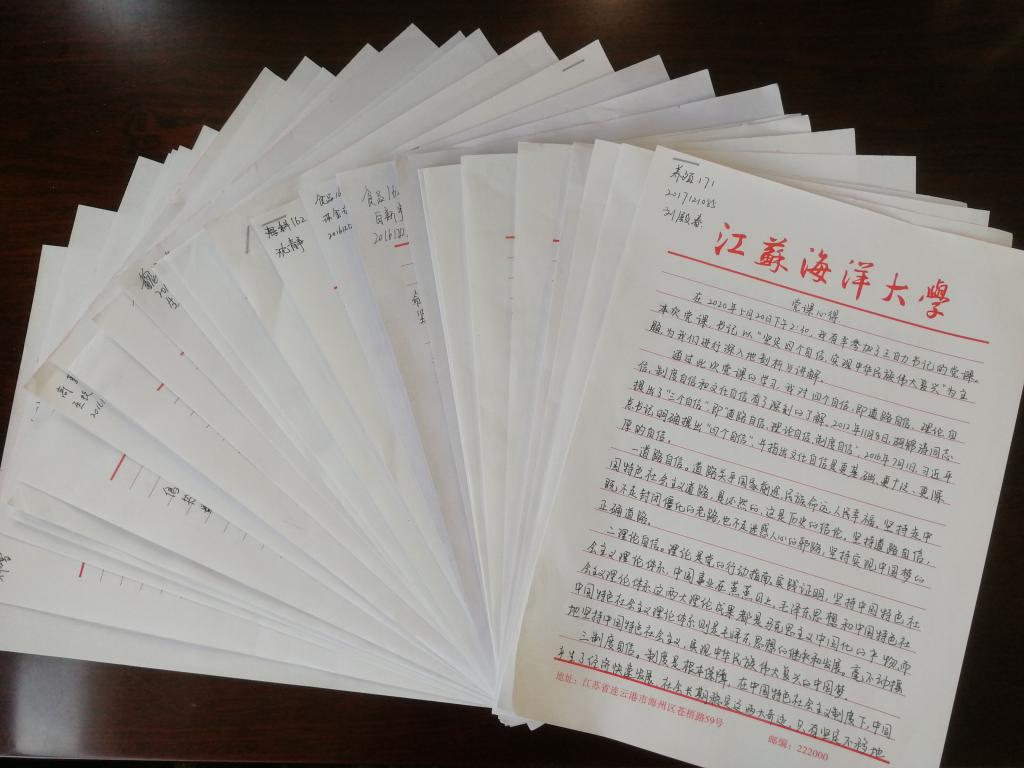 养殖171
2017121085
江蘇海洋大學
党课心得
在2020年5月20日下午2:30,我有幸参加了王自力书记的党课。
本次党课,书记以“坚定四个自信,实现中华民族伟大复兴”为主
题为我们进行深入地剖析与讲解。
通过此次党课的学习,我对四个自信,即道路自信、理论自
信、制度自信和文化自信有了深刻的了解。2012年11月8日,胡锦涛同志
提出了“三个自信”,即“道路自信、理论自信、制度自信”。2016年7月1日,习近平
总书记明确提出“四个自信”,并指出文化自信是更基础、更广泛、更深
厚的自信。
一道路自信。道路关乎国家前途、民族命运、人民幸福。坚持走中
国特色社会主义道路,是必然的,这是历史的结论。坚持道路自信,
既不走封闭僵化的老路,也不走迷惑人心的邪路,坚持实现中国梦的
正确道路。
二理论自信。理论是党的行动指南,实践证明,坚持中国特色社
会主义理论体系,中国事业在蒸蒸日上。毛泽东思想和中国特色社
会主义理论体系这两大理论成果都是马克思主义中国化的产物,而
中国特色社会主义理论体系则是毛泽东思想的继承和发展。毫不动摇
地坚持中国特色社会主义,实现中华民族伟大复兴的中国梦
三制度自信。制度是根本保障,在中国特色社会主义制度下,中国
产生了经济快速发展、社会长期稳定这两大奇迹,只有坚定不移地
地址:江苏省连云港市海州区苍梧路59号
邮编:222000
海科162
狄静
食品16
食品162